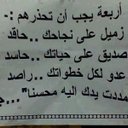 أربعة يجب أن تحذرهم :-
زميل على نجاحك .. حاقد
صديق على حياتك .. حاسد
عدو لكل خطواتك .. راصد
مددت يدك اليه محسنا"...